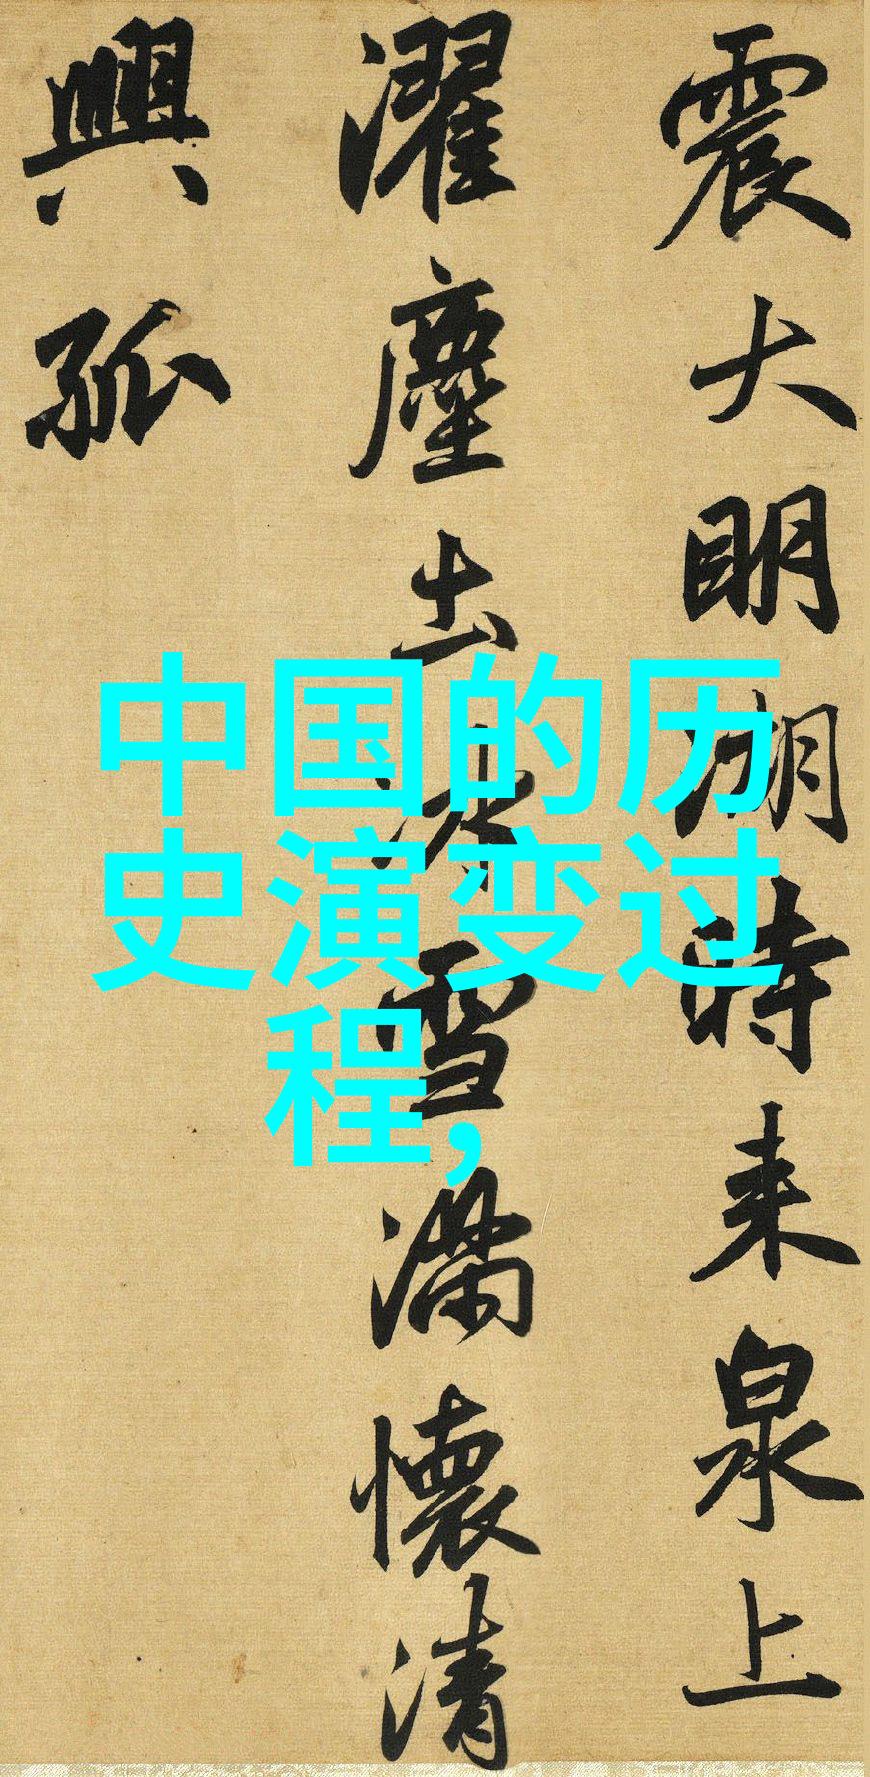 震大明湖時来泉上
濯塵土冰雪滿懷清
興孤
中国的历
史演变过
程,